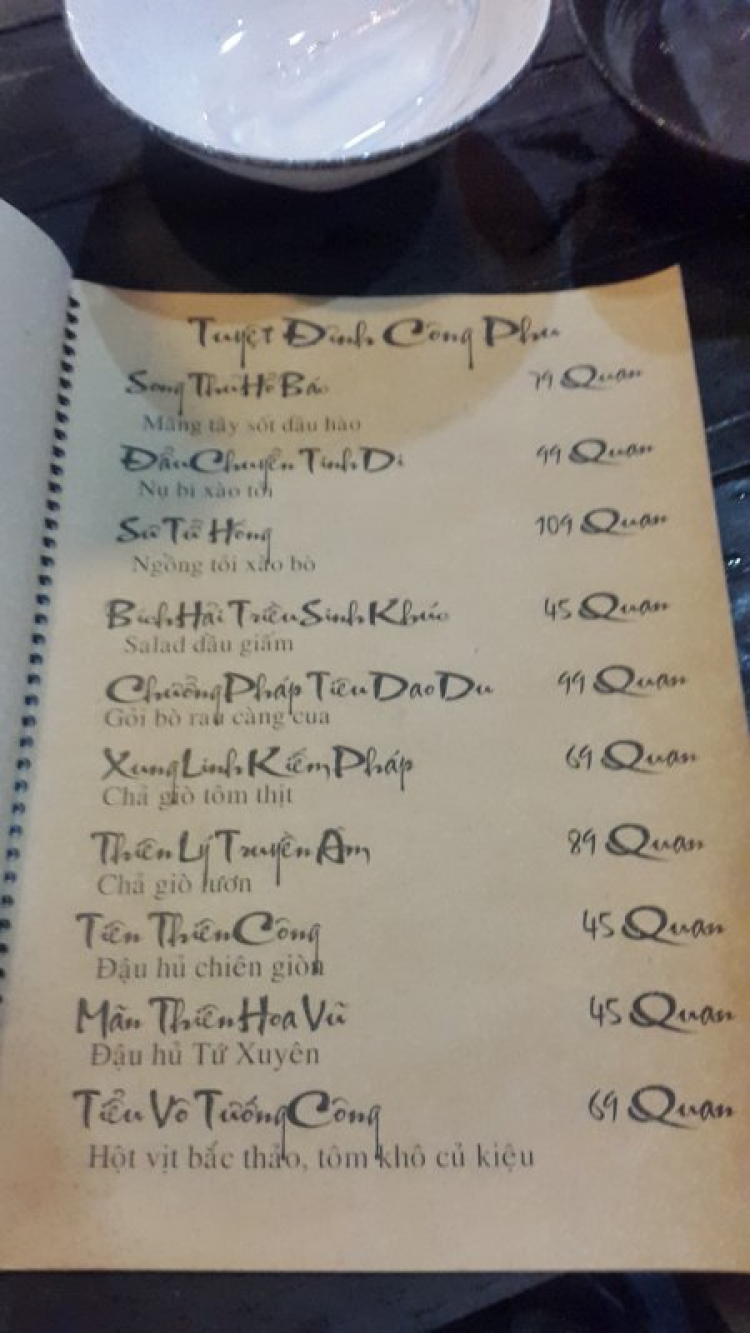 Tuyệt Đỉnh Công Phu
Song Thủ Hổ Báo 79 Quan
Măng tây sốt dầu hào
Đẩu Chuyển Tinh Di 99 Quan
Nụ bí xào tỏi
Sư Tử Hống 109 Quan
Ngồng tỏi xào bò
Bích Hải Triều Sinh Khúc 45 Quan
Salad dầu giấm
Chưởng Pháp Tiêu Dao Du 99 Quan
Gỏi bò rau càng cua
Xung Linh Kiếm Pháp 69 Quan
Chả giò tôm thịt
Thiên Lý Truyền Âm 89 Quan
Chả giò lươn
Tiên Thiên Công 45 Quan
Đậu hủ chiên giòn
Mãn Thiên Hoa Vũ 45 Quan
Đậu hủ Tứ Xuyên
Tiểu Vô Tướng Công 69 Quan
Hột vịt bắc thảo, tôm khô củ kiệu